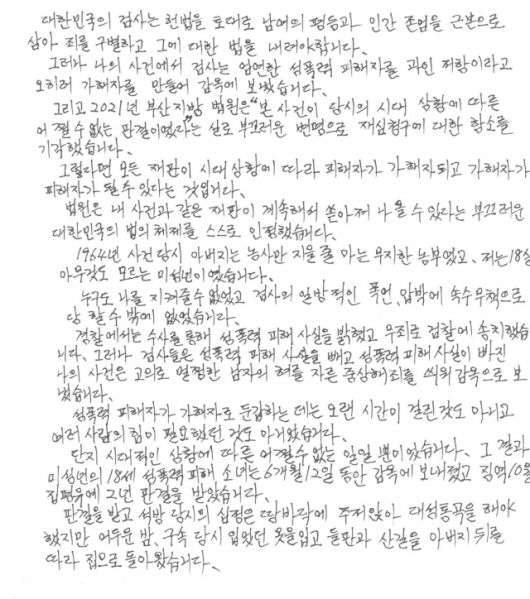 대한민국의 검사는 헌법을 토대로 남여의 평등과 인간 존엄을 근본으로
삼아 죄를 구별하고 그에 대한 벌을 내려야 합니다.
그러나 나의 사건에서 검사는 엄연한 성폭력 피해자를 과인 저항이라고
오히려 가해자를 만들어 감옥에 보냈습니다.
그리고 2021년 부산지방 법원은 "본 사건이 당시의 시대 상황에 따른
어쩔 수 없는 판결이였다"는 실로 부끄러운 변명으로 재심청구에 대한 항소를
기각했습니다.
그렇다면 모든 재판이 시대 상황에 따라 피해자가 가해자 되고 가해자가
피해자가 될 수 있다는 것입니다.
법원은 내 사건과 같은 재판이 계속해서 쏟아져 나올 수 있다는 부끄러운
대한민국의 법의 체제를 스스로 인정했습니다.
1964년 사건 당시 아버지는 농사만 지을 줄 아는 무지한 농부였고, 저는 18살
아무것도 모르는 미성년이였습니다.
누구도 나를 지켜줄 수 없었고 검사의 일방적인 폭언, 압박에 속수무책으로
당할 수 밖에 없었습니다.
경찰에서는 수사를 통해 성폭력 피해 사실을 밝혔고 무죄로 검찰에 송치했습
니다. 그러나 검사들은 성폭력 피해 사실을 빼고 성폭력 피해 사실이 빠진
나의 사건은 고의로 멀쩡한 남자의 혀를 자른 중상해죄를 씌워 감옥으로 보
냈습니다.
성폭력 피해자가 가해자로 둔갑하는 데는 오랜 시간이 걸린 것도 아니고
여러 사람의 힘이 필요했던 것도 아니였습니다.
단지 시대적인 상황에 따른 어쩔 수 없는 일일 뿐이었습니다. 그 결과
미성년의 18세 성폭력 피해 소녀는 6개월 12일 동안 감옥에 보내졌고 징역 10월
집편유예 2년 판결을 받았습니다.
판결을 받고 석방 당시의 심정은 땅바닥에 주저앉아 대성통곡을 해야
했지만 어두운 밤, 구속 당시 입었던 옷을 입고 들판과 산길을 아버지 뒤를
따라 집으로 돌아왔습니다.